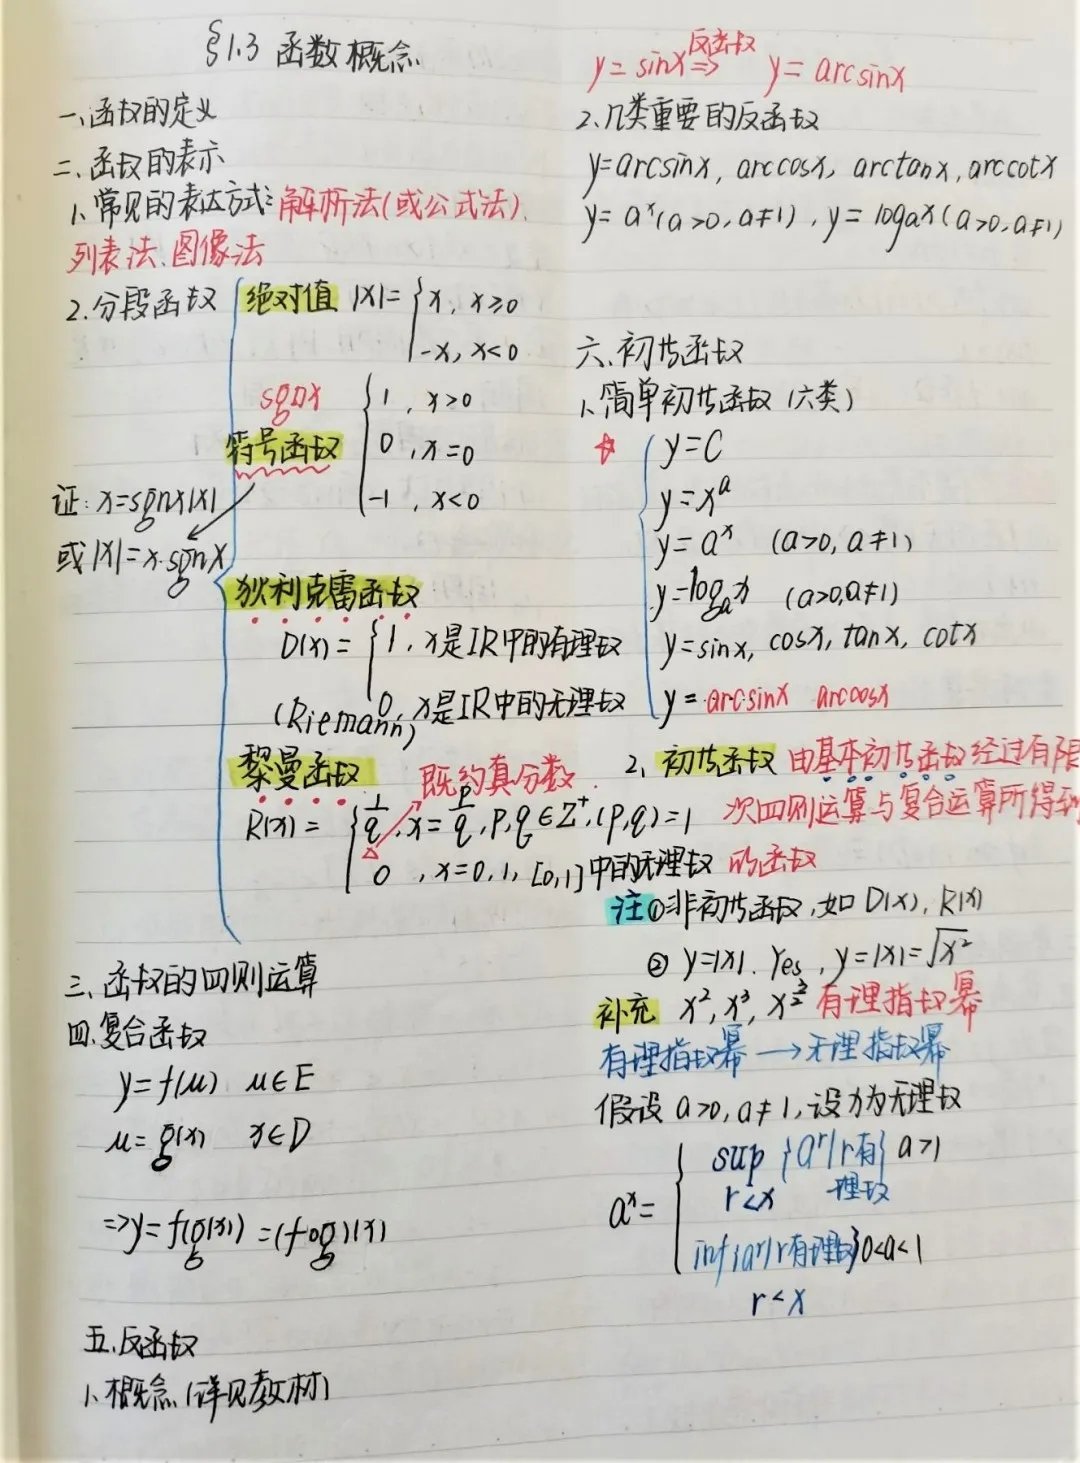 §1.3 函数概念
一、函数的定义
二、函数的表示
1、常见的表达方式:解析法(或公式法)、
列表法、图像法
2.分段函数 绝对值 |x|= { x, x≥0
-x, x<0
sgnx
符号函数 { 1, x>0
0, x=0
-1, x<0
证: x=sgnx|x|
或|x|=x·sgnx
狄利克雷函数
D(x)= { 1, x是IR中的有理数
0, x是IR中的无理数
(Riemann)
黎曼函数 既约真分数
R(x)= { 1/q, x=p/q, p,q∈Z⁺,(p,q)=1
0, x=0,1, [0,1]中的无理数
三、函数的四则运算
四.复合函数
y=f(u) u∈E
u=g(x) x∈D
=>y=f(g(x))=(fog)(x)
五.反函数
1、概念(详见教材)
y=sinx 反函数=> y=arcsinx
2、几类重要的反函数
y=arcsinx, arccosx, arctanx, arccotx
y=aˣ(a>0,a≠1), y=logₐx(a>0,a≠1)
六、初等函数
1、简单初等函数(六类)
☆ { y=C
y=xᵃ
y=aˣ (a>0,a≠1)
y=logₐx (a>0,a≠1)
y=sinx, cosx, tanx, cotx
y=arcsinx arccosx
2、初等函数 由基本初等函数经过有限
次四则运算与复合运算所得到
的函数
注①非初等函数,如D(x), R(x)
② y=|x|. Yes, y=|x|=√x²
补充 x², x³, x^(3/2) 有理指数幂
有理指数幂→无理指数幂
假设a>0,a≠1,设x为无理数
aˣ= { sup {aʳ|r有理数} a>1
r<x
inf{aʳ|r有理数} 0<a<1
r<x